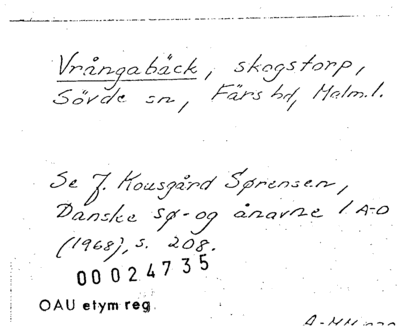 Vrångabäck, skogstorp,
Sövde sn, Färs hd, Malm.l.
Se J. Kousgård Sørensen,
Danske sø- og ånavne 1 A-D
(1968), s. 208.
00024735
OAU etym reg